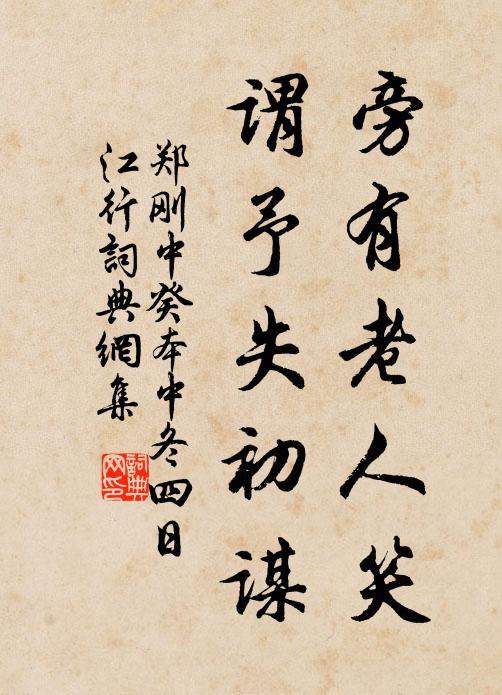 旁有老人笑
谓予失初谋
郑刚中癸本中冬四日
江行詞典網集
詞典网印